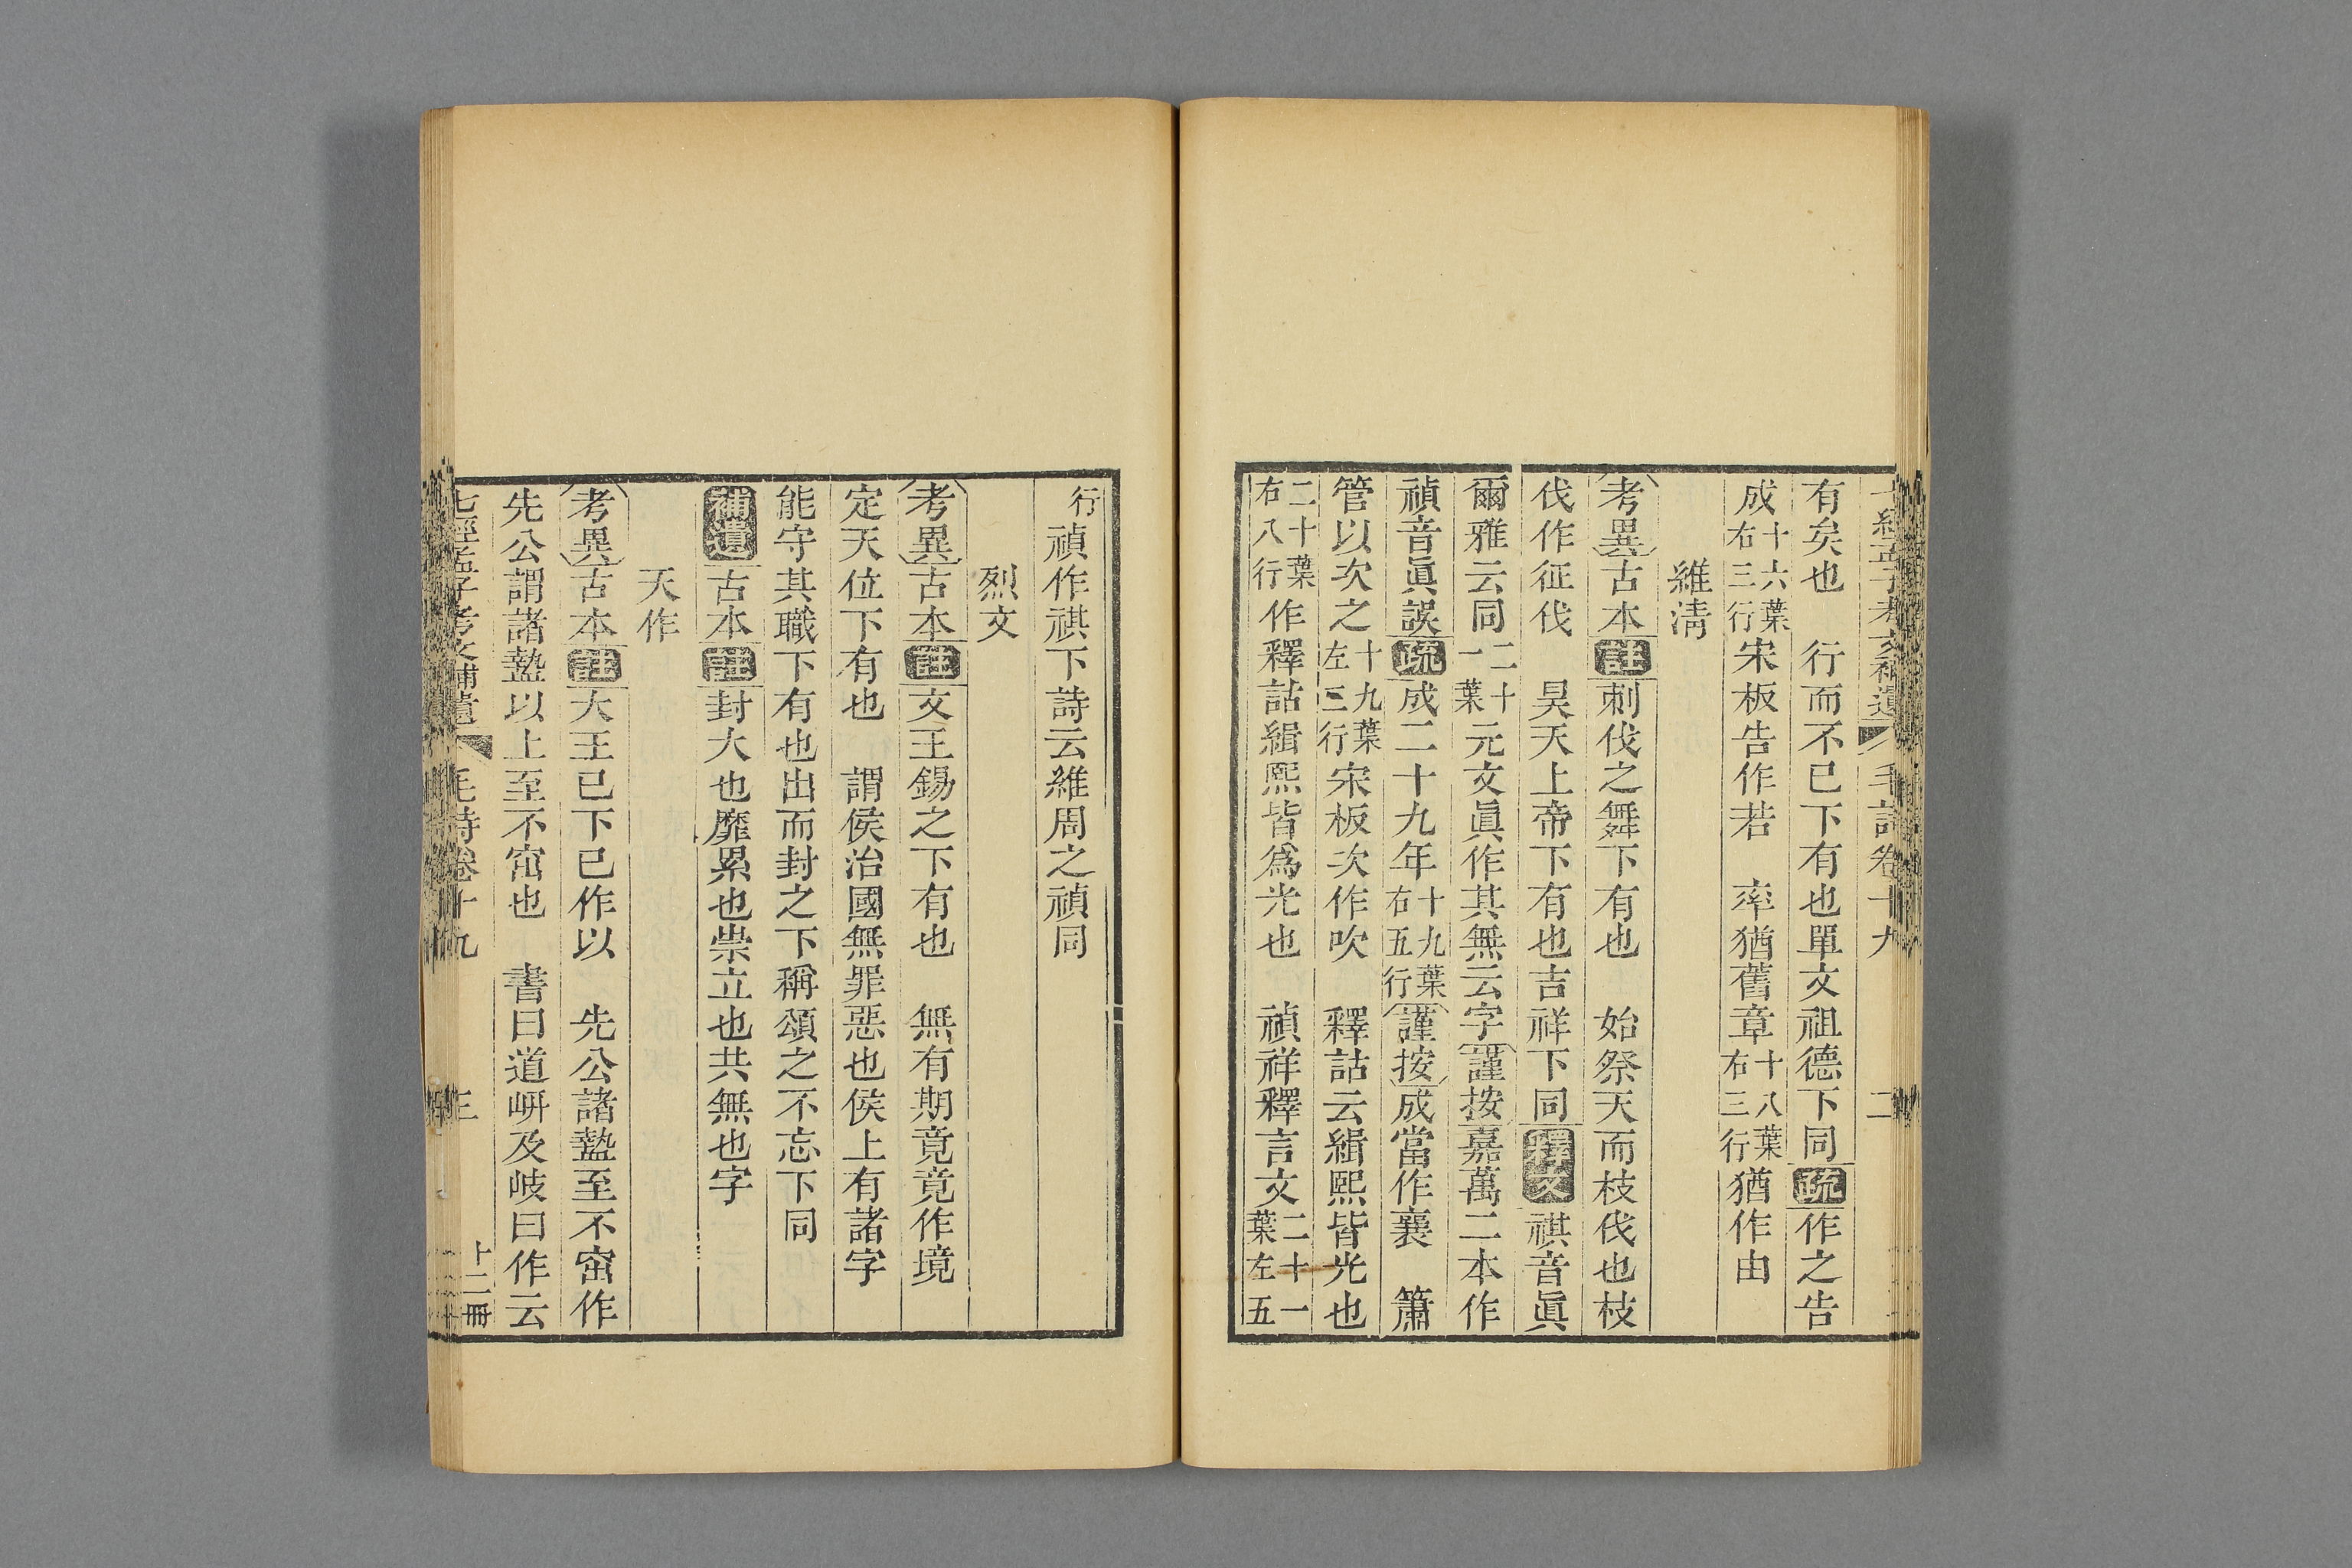 七經孟子考文補遺 毛詩卷十九 二
有矣也 行而不已下有也單文祖德下同疏作之告
成十六葉右三行宋板告作若 率猶舊章十八葉右三行猶作由
維淸
考異古本註刺伐之舞下有也 始祭天而枝伐也枝
伐作征伐 昊天上帝下有也吉祥下同釋文祺音眞
爾雅云同二十一葉元文眞作其無云字謹按嘉萬二本作
禎音眞誤疏成二十九年十九葉右五行謹按成當作襄 簫
管以次之十九葉左三行宋板次作吹 釋詁云緝熙皆光也
二十葉右八行作釋詁緝熙皆爲光也 禎祥釋言文二十一葉左五
行禎作祺下詩云維周之禎同
烈文
考異古本註文王錫之下有也 無有期竟竟作境
定天位下有也 謂侯治國無罪惡也侯上有諸字
能守其職下有也出而封之下稱頌之不忘下同
補遺古本註封大也靡累也崇立也共無也字
天作
考異古本註大王已下已作以 先公諸盩至不窋作
先公謂諸盩以上至不窋也 書曰道岍及岐曰作云
七經孟子考文補遺 毛詩卷十九 三 十二冊